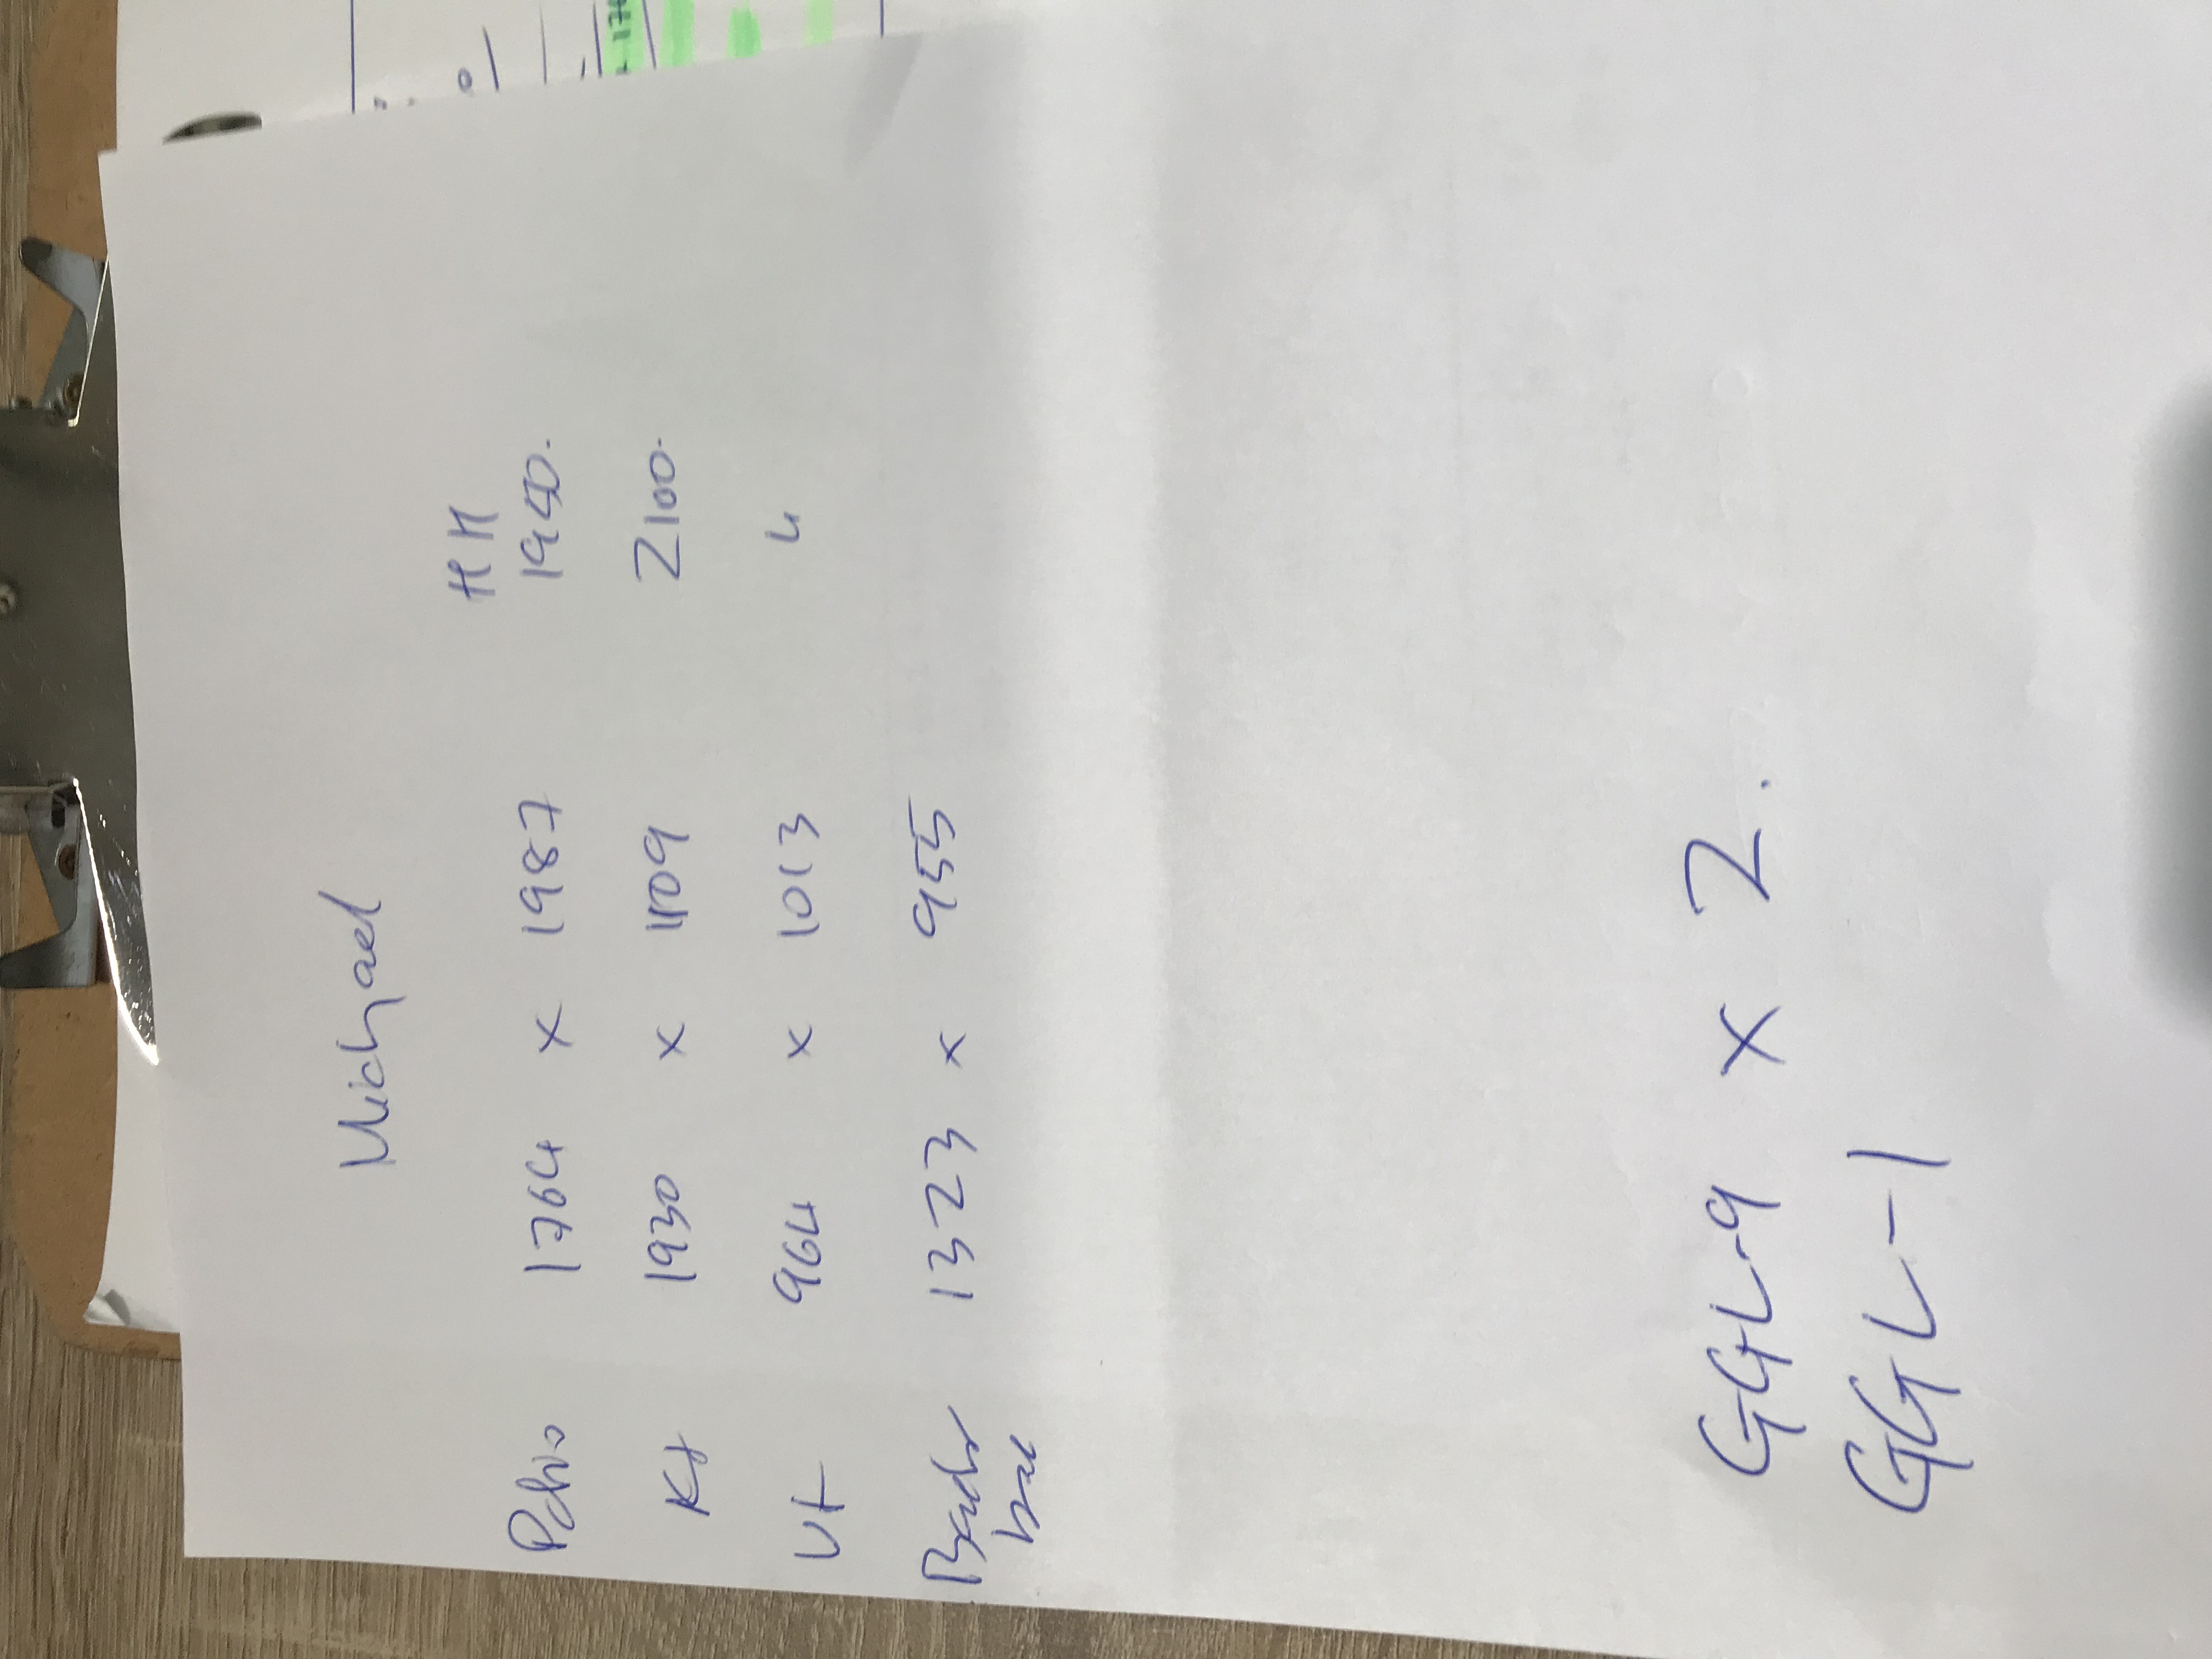 Michael
HH
Patio 1764 x 1987 1950.
Kt 1930 x 1109 2100.
Ut 964 x 1013 "
1323 x 955
GGL-9 x 2.
GGL-1